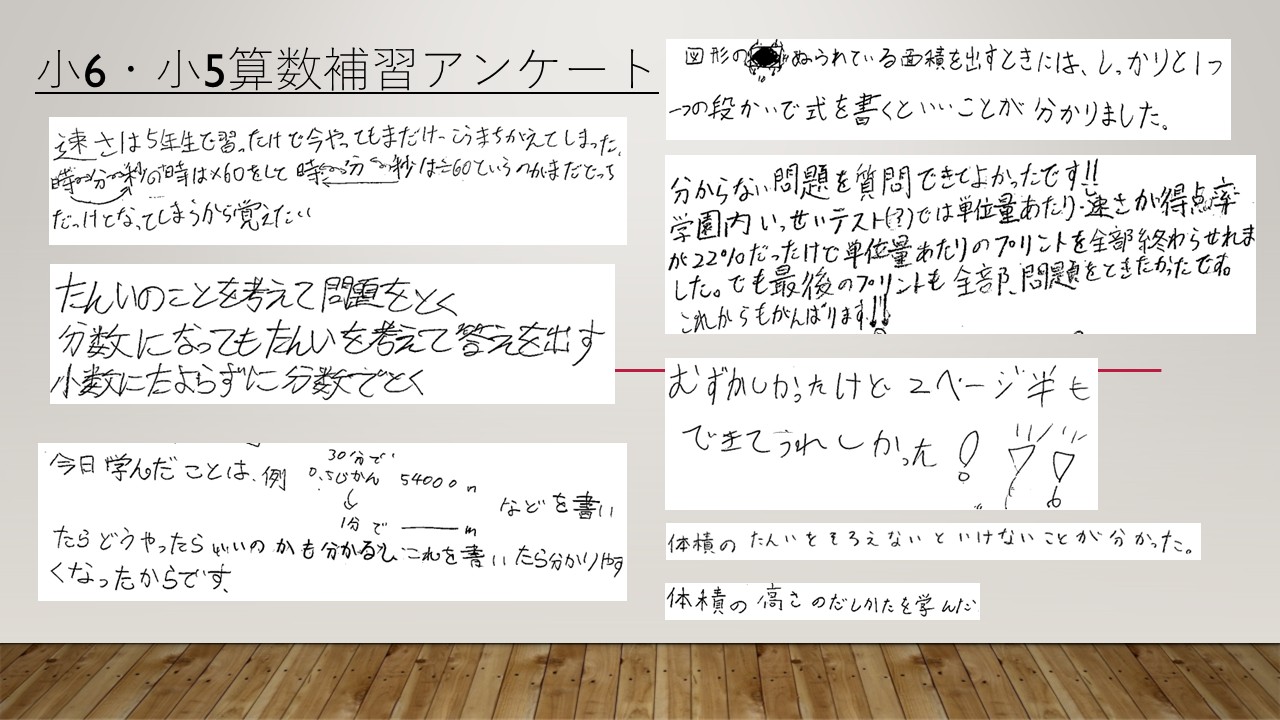 小6・小5算数補習アンケート
速さは5年生で習ったけど今やってもまだけっこうまちがえてしまった。
時→分→秒の時は×60をして時←分←秒は÷60というのがまだどっち
だっけとなってしまうから覚えたい
たんいのことを考えて問題をとく
分数になってもたんいを考えて答えを出す
小数にたよらずに分数でとく
今日学んだことは、例
30分で
0.5じかん 54000m
↓
1分で ――m
などを書い
たらどうやったらいいのかも分かるしこれを書いたら分かりやす
くなったからです。
図形のぬられている面積を出すときには、しっかりと1つ
一つの段かいで式を書くといいことが分かりました。
分からない問題を質問できてよかったです!!
学園内いっせいテスト(?)では単位量あたり・速さが得点率
が22%だったけど単位量あたりのプリントを全部終わらせれま
した。でも最後のプリントも全部、問題をときたかったです。
これからもがんばります!!
むずかしかったけど2ページ半も
できてうれしかった!
体積のたんいをそろえないといけないことが分かった。
体積の高さのだしかたを学んだ